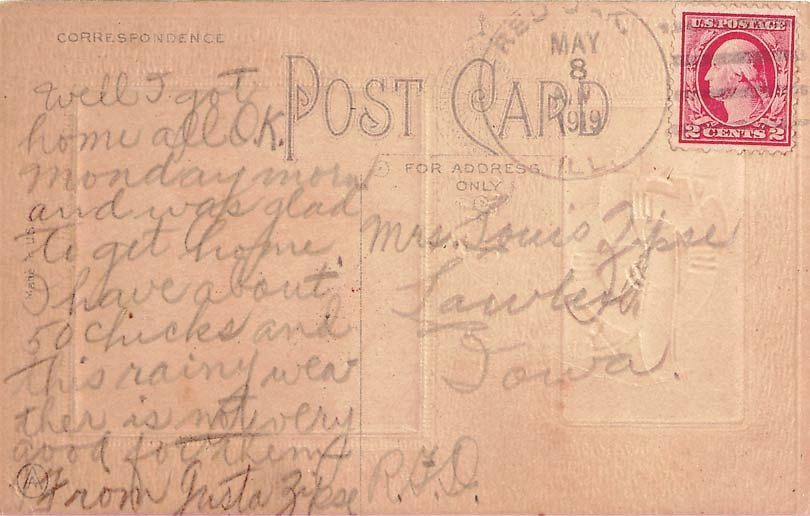 CORRESPONDENCE
POST CARD
FOR ADDRESS
ONLY
MAY
8
1919
ILL.
U.S. POSTAGE
2 CENTS 2
Well I got
home all O.K.
Monday morn
and was glad
to get home.
I have about
50 chicks and
this rainy wea
ther is not very
good for them
From Justa Zipse
Mrs. Louis Zipse
Lawler
Iowa.
R.F.D.
Made in U.S.A.
A